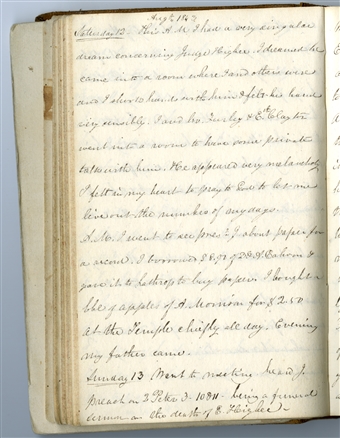 Aug. 1843
Saturday 12. This A.M. I had a very singular
dream concerning Judge Higbee. I dreamed he
came into a room where I and others were
and I shook hands with him & felt his hand
very sensibly. I and bro. Turley & Clayton
went into a room to have some private
talk with him. He appeared very melancholy
I felt in my heart to pray to God to let me
live out the number of my days.
A.M. I went to see prest. J. about paper for
a record. I borrowed of
gave it to Lathrop to buy paper. I bought a
bbl of apples of A. Morrison for $2.50
At the Temple chiefly all day. Evening
my father came.
Sunday 13 Went to meeting heard J.
preach on 2 Peter 3. 10 & 11 being a funeral
sermon on the death of E. Higbee.